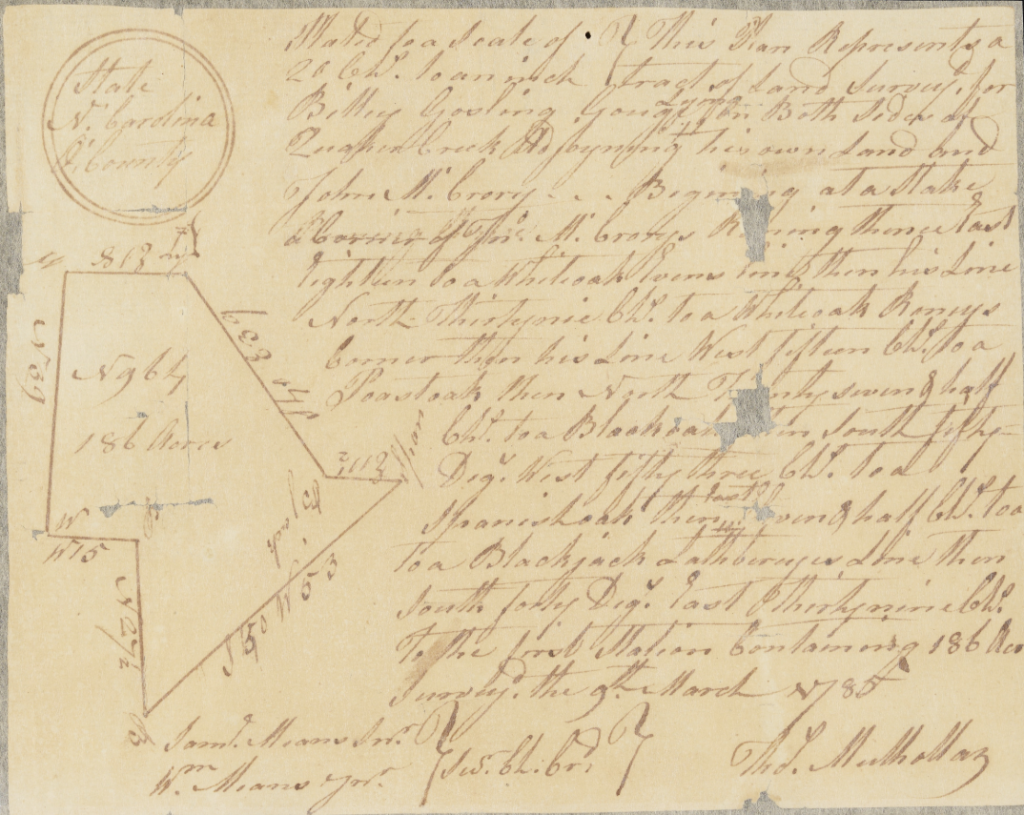 State
N. Carolina
County
Plated for a Scale of
20 Chs. to an inch
This Plan Represents a
tract of Land Survey'd for
Billey Gosling lying on Both Sides of
Quaker Creek Adjoyning his own Land and
John Mc. Crory - - - Begining at a Stake
of Jno. Mc. Crorys Runing thence East
Eighteen to a Whiteoak then his Line
North Thirtynie Chs. to a Whiteoak Roneys
Corner then his Line West fifteen Chs. to a
Postoak then North Twenty seven & half
Chs. to a Blackoak then South fifty
Degs. West fifty three Chs. to a
Spanishoak then East Seven & half Chs. to a
to a Blackjack Line then
South forty Degs. East Thirtynine Chs.
To the first Station Containing 186 Acres
Survey'd the 9th. March 1785
Saml. Means Jnr.
Wm. Means Jnr.
Ch. br
Thos. Mulhollan
E 18
N 39
N 964
186 Acres
W 15
N 27½
S 50 W 53
E 7½
S 40 E 39